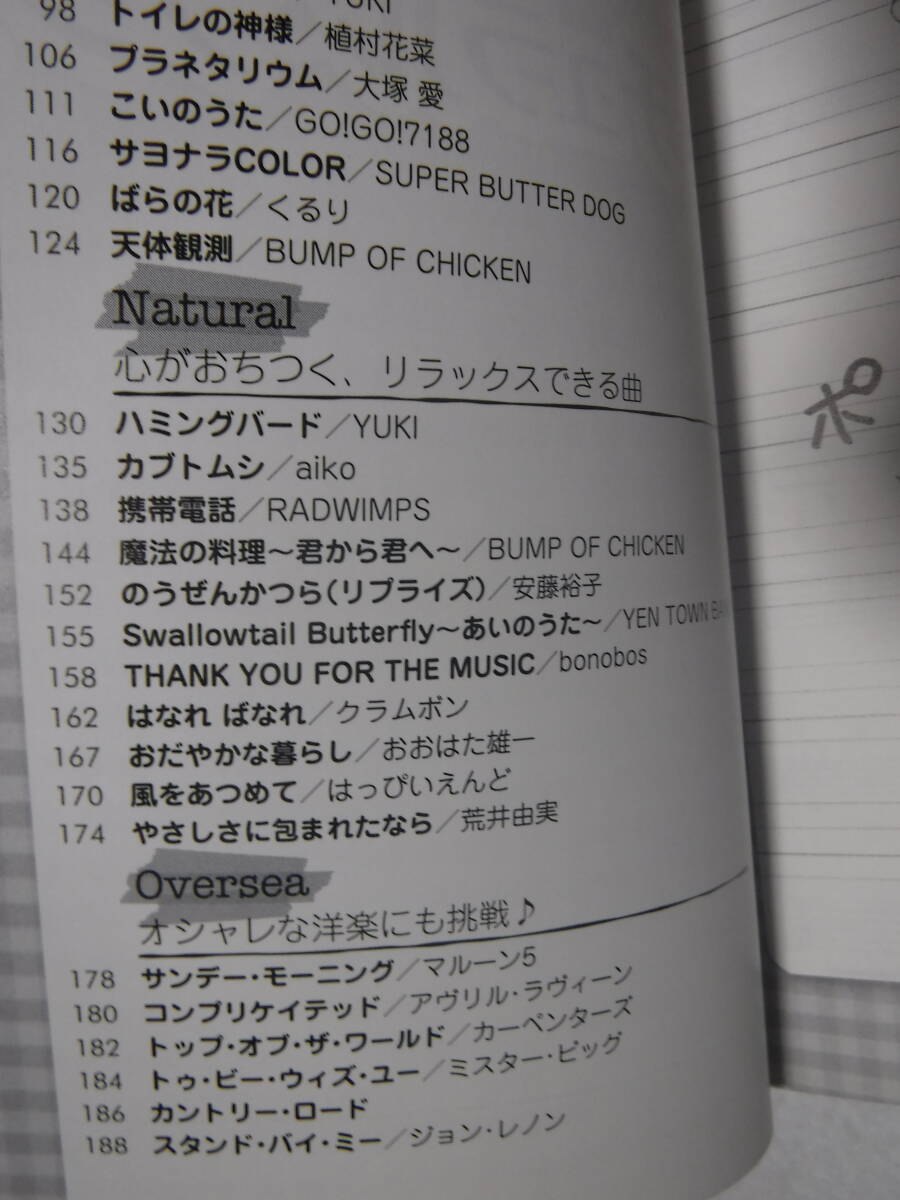 YUKI
98 トイレの神様／植村花菜
106 プラネタリウム／大塚 愛
111 こいのうた／GO!GO!7188
116 サヨナラCOLOR／SUPER BUTTER DOG
120 ばらの花／くるり
124 天体観測／BUMP OF CHICKEN
Natural
心がおちつく、リラックスできる曲
130 ハミングバード／YUKI
135 カブトムシ／aiko
138 携帯電話／RADWIMPS
144 魔法の料理〜君から君へ〜／BUMP OF CHICKEN
152 のうぜんかつら（リプライズ）／安藤裕子
155 Swallowtail Butterfly〜あいのうた〜／YEN TOWN
158 THANK YOU FOR THE MUSIC／bonobos
162 はなれ ばなれ／クラムボン
167 おだやかな暮らし／おおはた雄一
170 風をあつめて／はっぴいえんど
174 やさしさに包まれたなら／荒井由実
Oversea
オシャレな洋楽にも挑戦♪
178 サンデー・モーニング／マルーン5
180 コンプリケイテッド／アヴリル・ラヴィーン
182 トップ・オブ・ザ・ワールド／カーペンターズ
184 トゥ・ビー・ウィズ・ユー／ミスター・ビッグ
186 カントリー・ロード
188 スタンド・バイ・ミー／ジョン・レノン
ポ